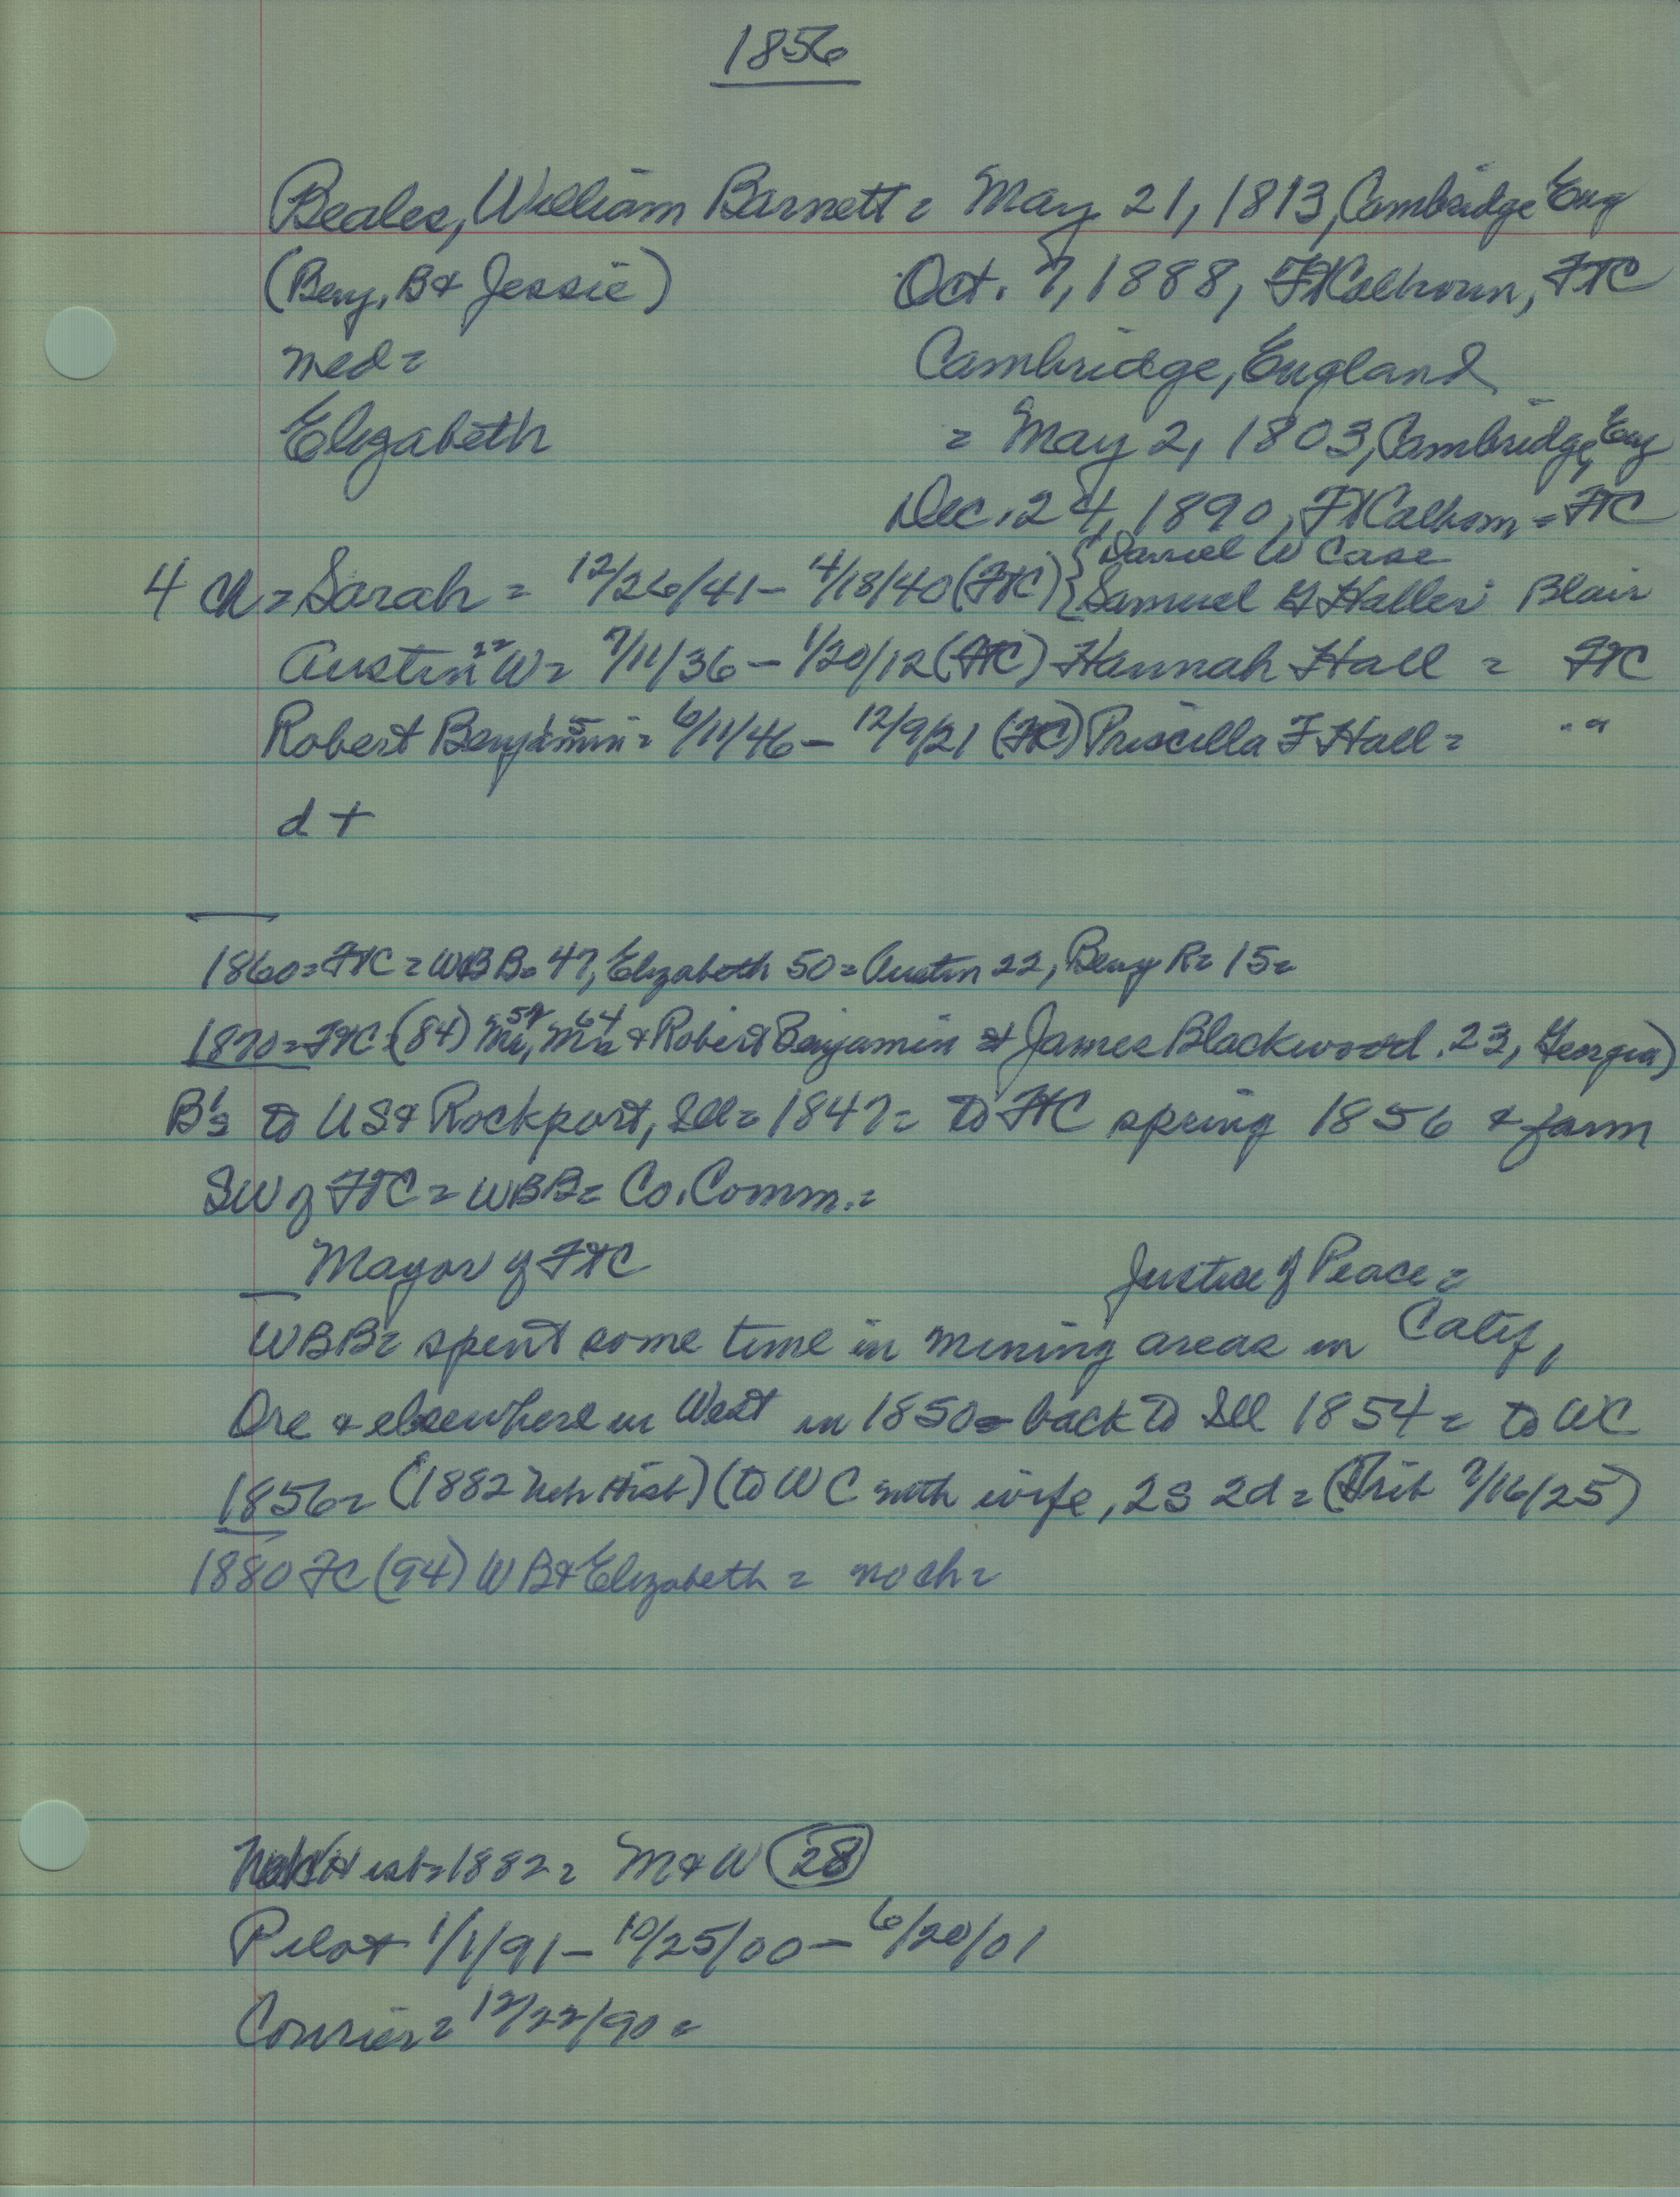 1856
Beales, William Barnett = May 21, 1813, Cambridge Eng
(Benj. B & Jessie) Oct. 7, 1888, FtCalhoun, FTC
med = Cambridge, England
Elizabeth = May 2, 1803, Cambridge, Eng
Dec. 24, 1890, FtCalhoun = FTC
{ Daniel W Case
4 Ch = Sarah = 12/26/41 - 4/18/40 (FTC) { Samuel G Haller Blair
Austin 22 W = 7/11/36 - 1/20/12 (FTC) Hannah Hall = FTC
Robert Benjamin = 6/11/46 - 12/9/21 (FTC) Priscilla F Hall = " "
d +
1860 = FTC = WBB = 47, Elizabeth 50 = Austin 22, Benj R = 15 =
1870 = FTC = (84) Mr, 57 Mrs 64 & Robert Benjamin & James Blackwood . 23, Georgia)
B's to US & Rockport, Ill = 1847 = to FTC spring 1856 & farm
SW of FTC = WBB = Co. Comm. =
Mayor of FTC Justice of Peace =
WBB = spent some time in mining areas in Calif,
Ore & elsewhere in West in 1850 = back to Ill 1854 = to WC
1856 = (1882 Neb Hist) (to WC with wife, 2s 2d = (Trib 7/16/25)
1880 FC (94) WB & Elizabeth = no ch =
Neb Hist = 1882 = M & W 28
Pilot 1/1/91 - 10/25/00 - 6/20/01
Courier = 12/22/90 =